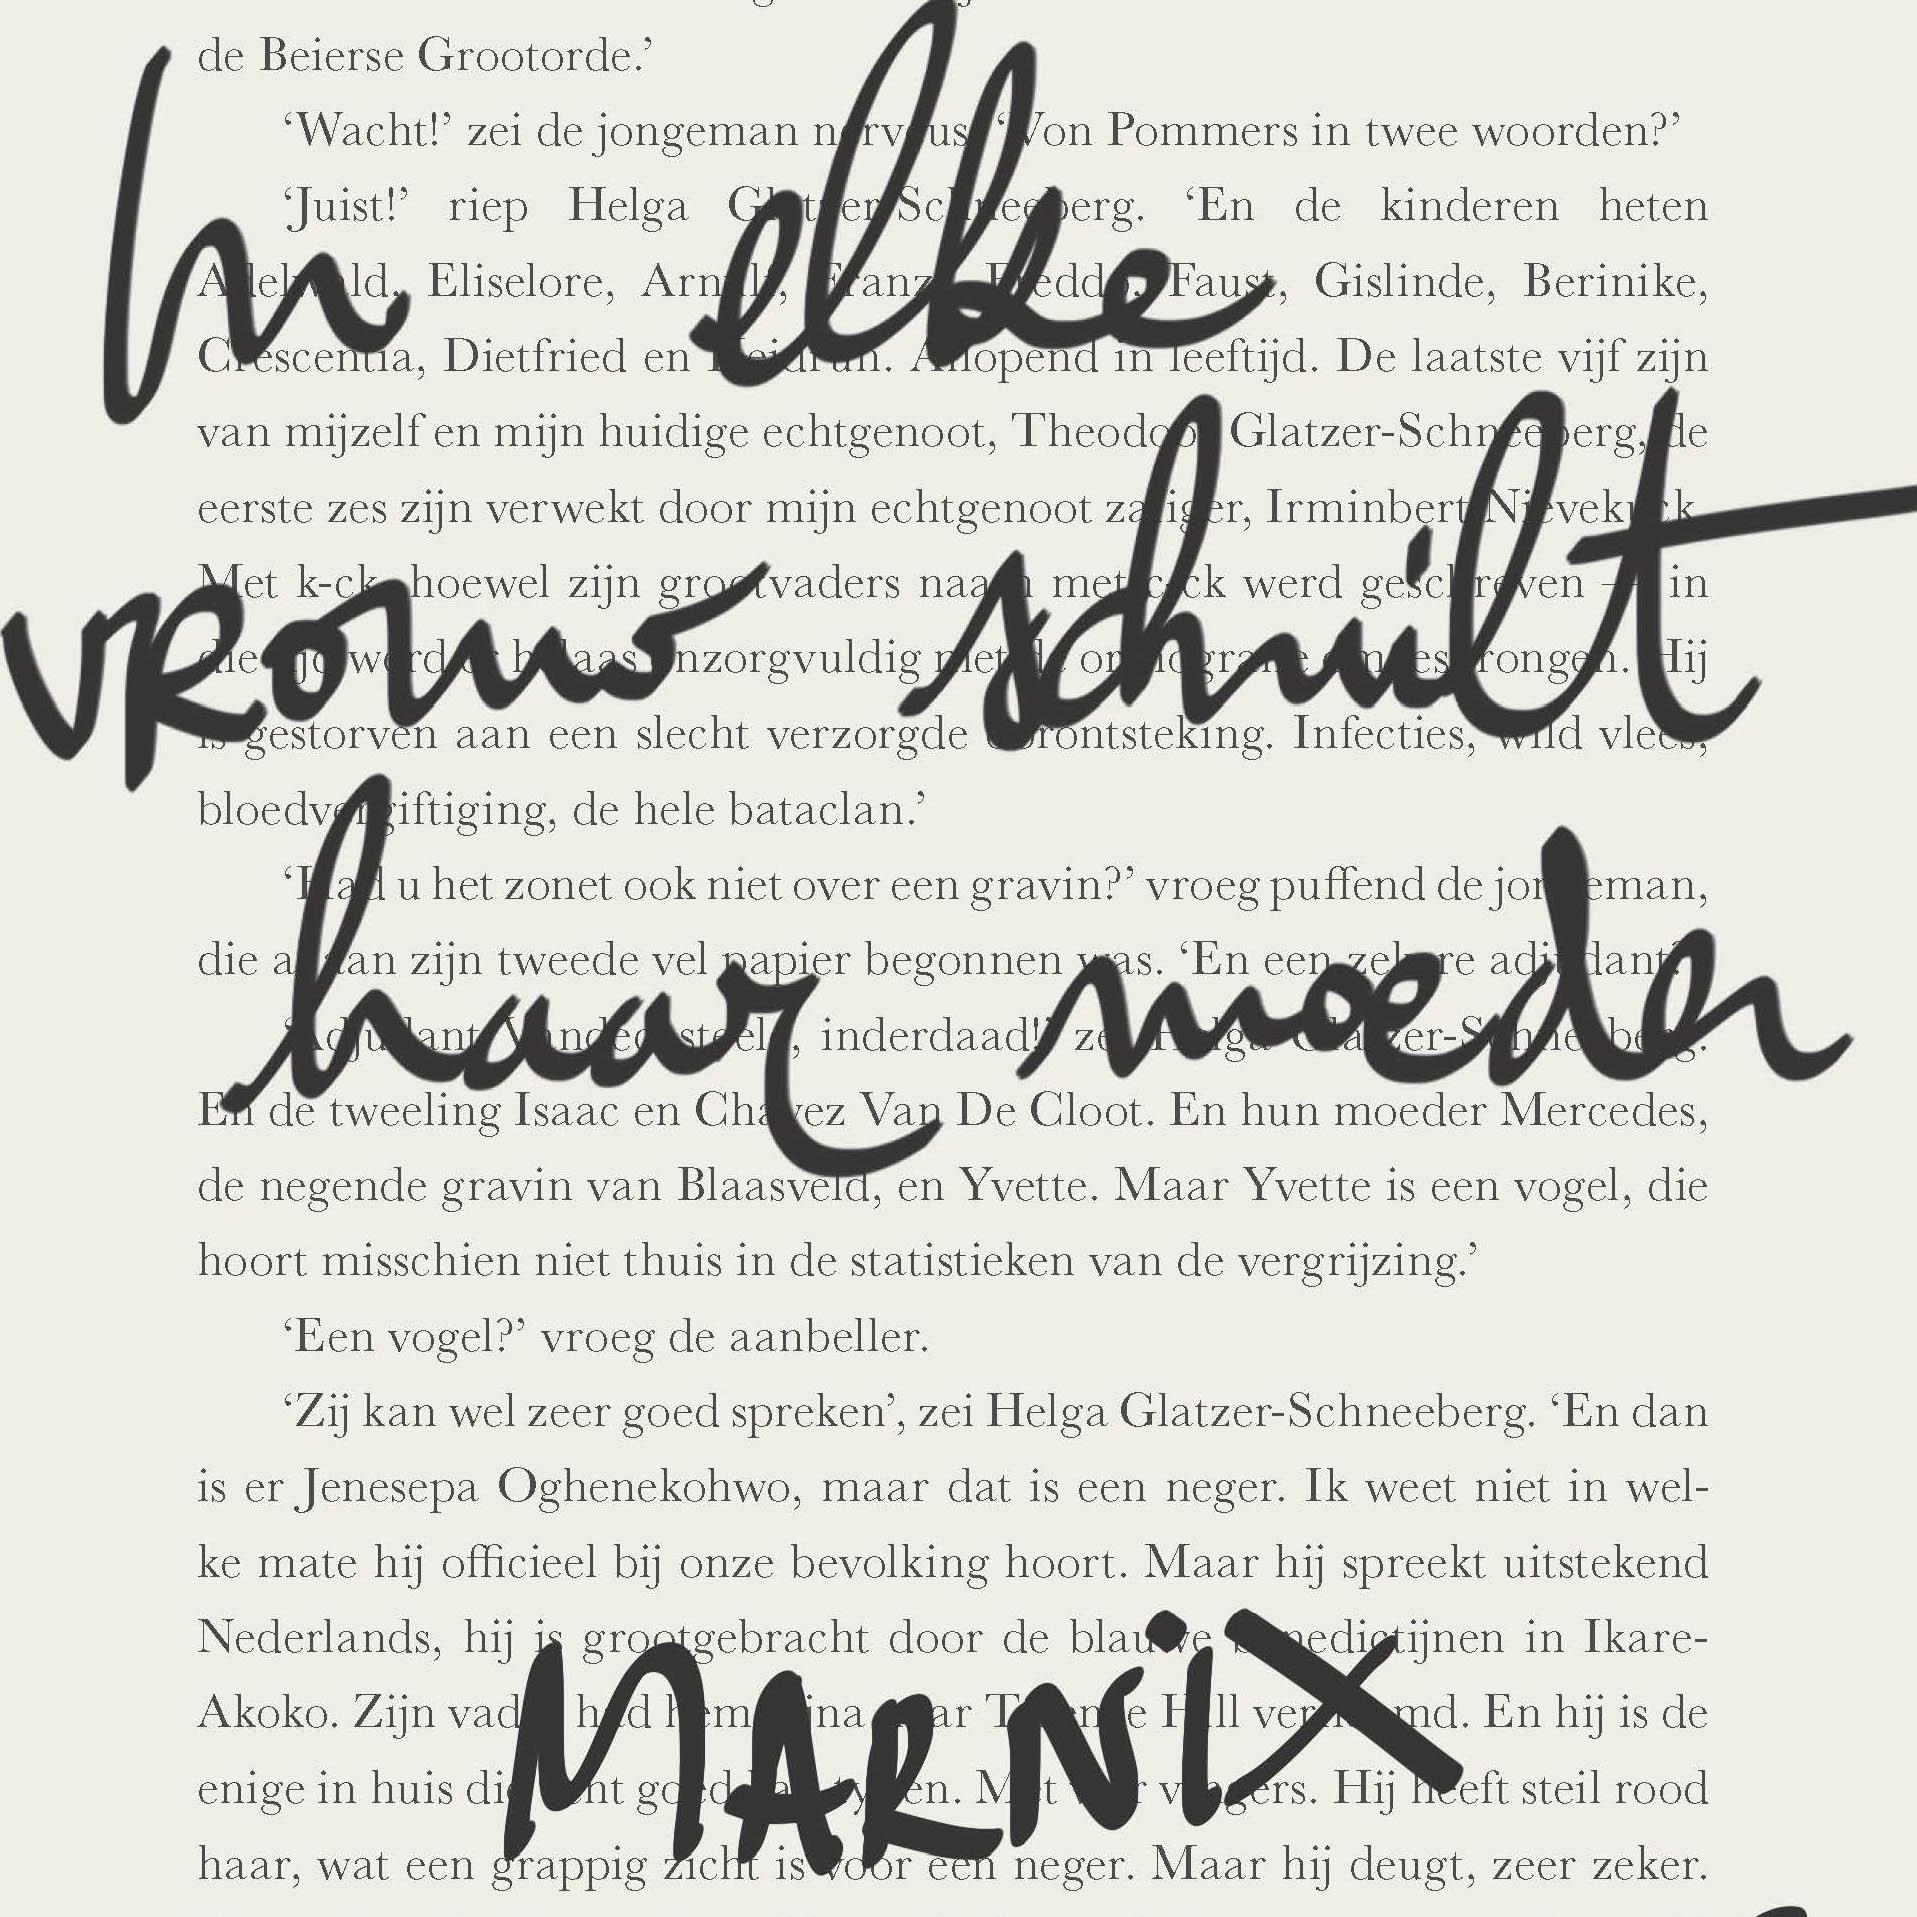 de Beierse Grootorde.’
‘Wacht!’ zei de jongeman nerveus. ‘Von Pommers in twee woorden?’
‘Juist!’ riep Helga Glatzer-Schneeberg. ‘En de kinderen heten
Adelwald, Eliselore, Arnulf, Franz, Freddo, Faust, Gislinde, Berinike,
Crescentia, Dietfried en Heidrun. Aflopend in leeftijd. De laatste vijf zijn
van mijzelf en mijn huidige echtgenoot, Theodoor Glatzer-Schneeberg, de
eerste zes zijn verwekt door mijn echtgenoot zaliger, Irminbert Nievekuck.
Met k-ck, hoewel zijn grootvaders naam met c-ck werd geschreven – in
die tijd werd er helaas onzorgvuldig met de orthografie omgesprongen. Hij
is gestorven aan een slecht verzorgde oorontsteking. Infecties, wild vlees,
bloedvergiftiging, de hele bataclan.’
‘Had u het zonet ook niet over een gravin?’ vroeg puffend de jongeman,
die al aan zijn tweede vel papier begonnen was. ‘En een zekere adjudant?’
‘Adjudant Vandecasteele, inderdaad!’ zei Helga Glatzer-Schneeberg.
En de tweeling Isaac en Chavez Van De Cloot. En hun moeder Mercedes,
de negende gravin van Blaasveld, en Yvette. Maar Yvette is een vogel, die
hoort misschien niet thuis in de statistieken van de vergrijzing.’
‘Een vogel?’ vroeg de aanbeller.
‘Zij kan wel zeer goed spreken’, zei Helga Glatzer-Schneeberg. ‘En dan
is er Jenesepa Oghenekohwo, maar dat is een neger. Ik weet niet in wel-
ke mate hij officieel bij onze bevolking hoort. Maar hij spreekt uitstekend
Nederlands, hij is grootgebracht door de blauwe benedictijnen in Ikare-
Akoko. Zijn vader had hem bijna naar Terence Hill vernoemd. En hij is de
enige in huis die echt goed kan typen. Met vier vingers. Hij heeft steil rood
haar, wat een grappig zicht is voor een neger. Maar hij deugt, zeer zeker.
In elke
vrouw schuilt
haar moeder
MARNiX